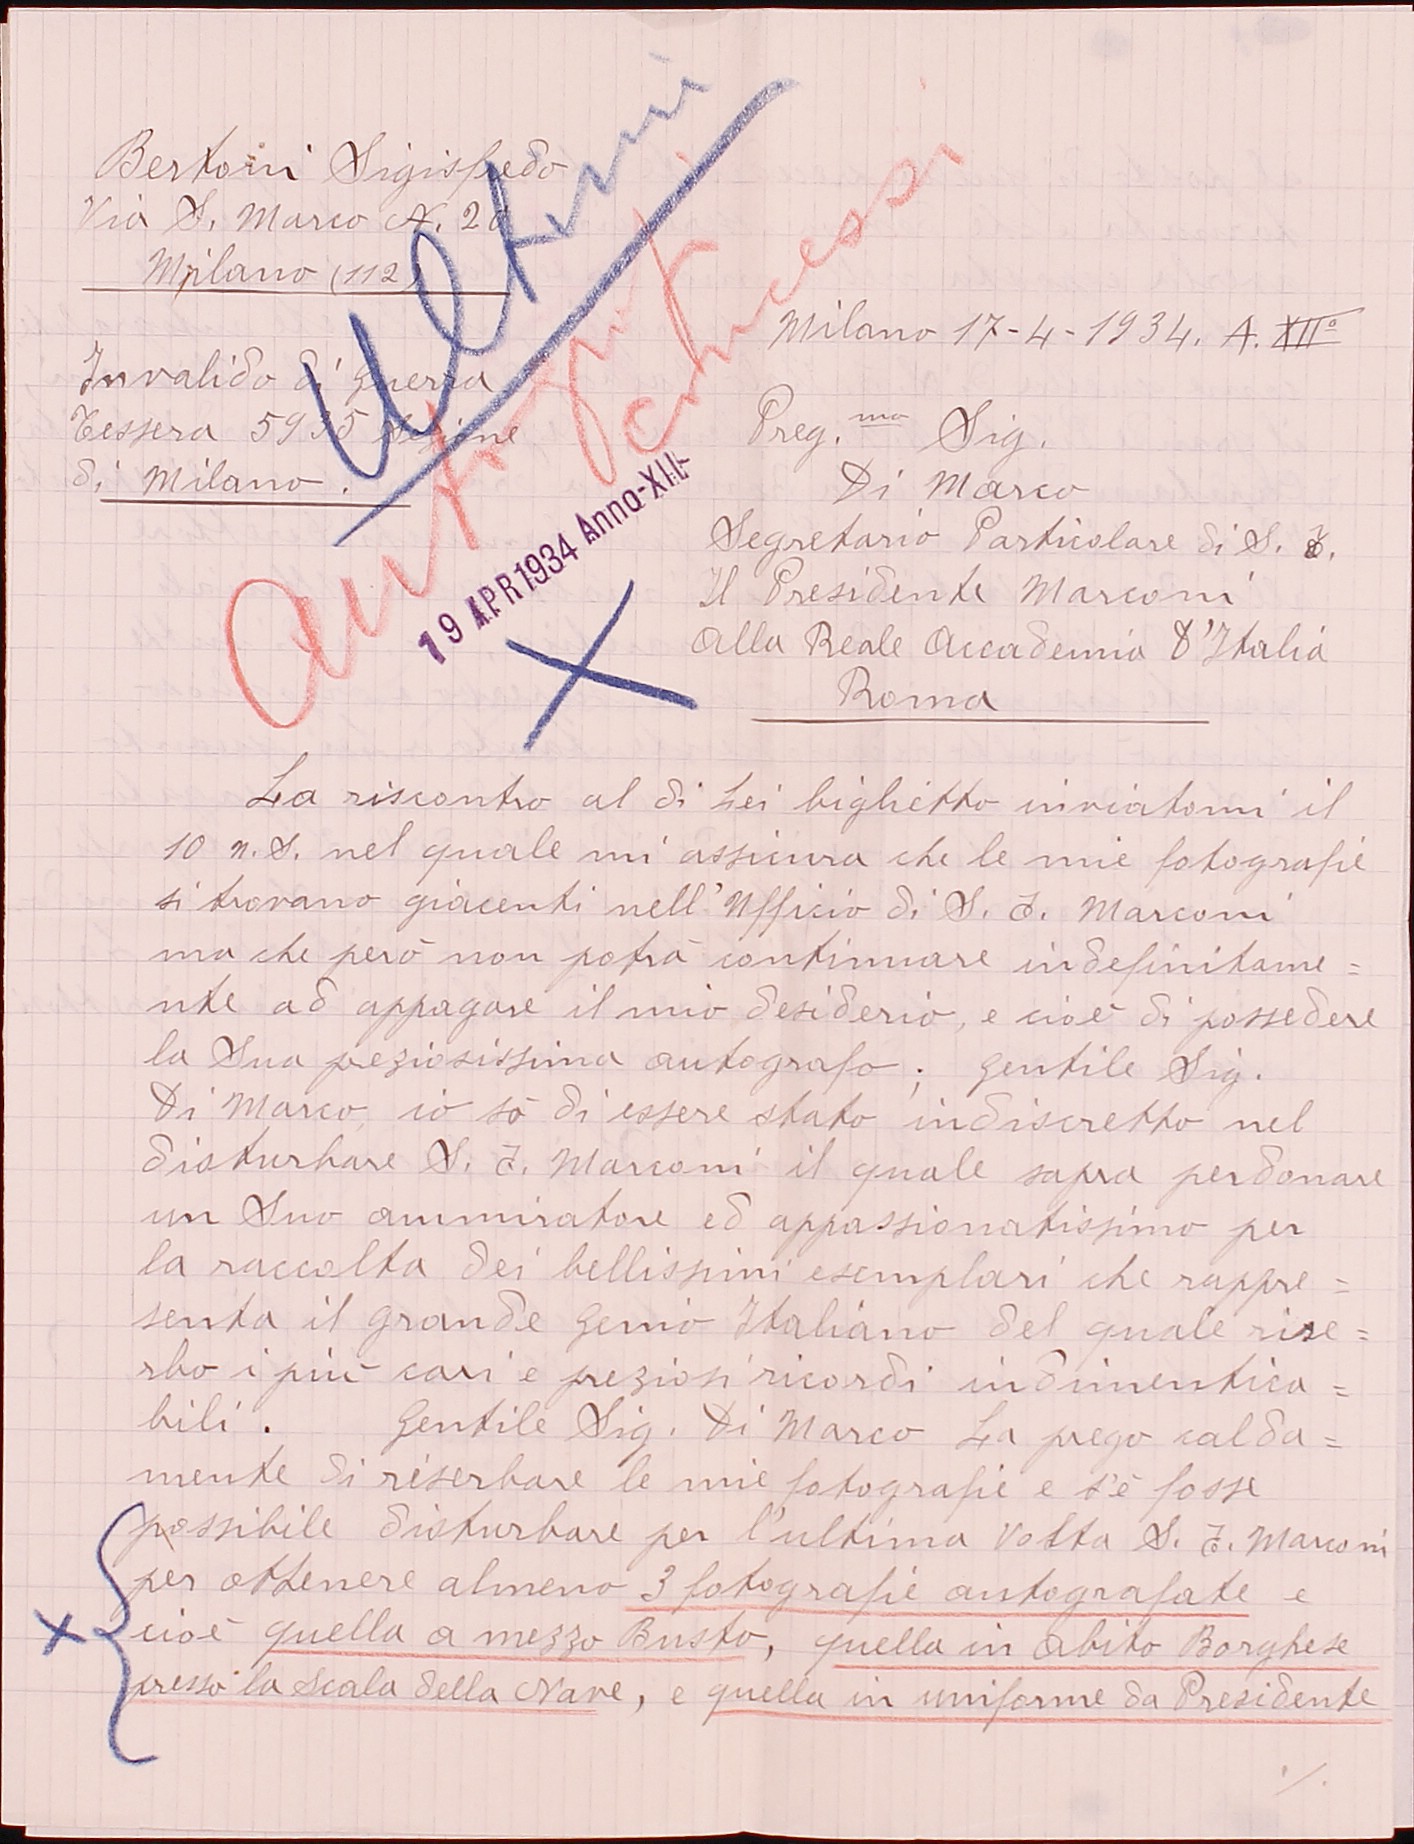 Bertoni Sigisfredo
Via S. Marco N. 20
Milano (112)
Invalido di guerra
Tessera 5935 Sezione
di Milano.
Ultimi
autografi
chiusesi
19 APR 1934 Anno-XII-
Milano 17-4-1934. A. XII°
Preg.mo Sig.
Di Marco
Segretario Particolare di S. E.
Il Presidente Marconi
alla Reale Accademia d'Italia
Roma
La riscontro al di Lei biglietto inviatomi il
10 u.s. nel quale mi assicura che le mie fotografie
si trovano giacenti nell'Ufficio di S. E. Marconi
ma che però non potrà continuare indefinitame=
nte ad appagare il mio desiderio, e cioè di possedere
la Sua preziosissima autografo; gentile Sig.
Di Marco, io sò di essere stato indiscretto nel
disturbare S. E. Marconi il quale sapra perdonare
un Suo ammiratore ed appassionatissimo per
la raccolta dei bellissimi esemplari che rappre=
senta il grande genio Italiano del quale rise=
rbo i più cari e preziosi ricordi indimentica=
bili. Gentile Sig. Di Marco La prego calda=
mente di riserbare le mie fotografie e s'è fosse
possibile disturbare per l'ultima Volta S. E. Marconi
per ottenere almeno 3 fotografie autografate e
cioè quella a mezzo Busto, quella in abito Borghese
presso la Scala della Nave, e quella in uniforme da Presidente
./.